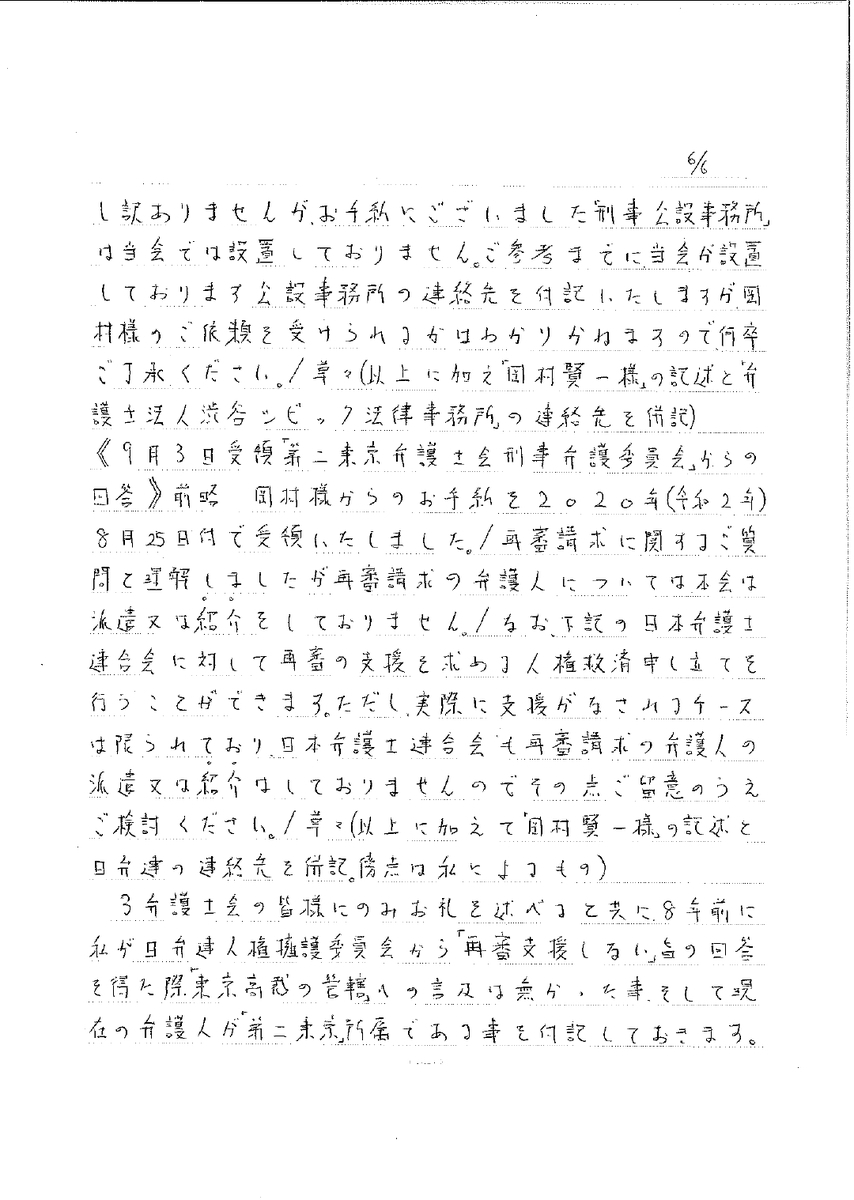 6/6
し訳ありませんが、お手紙にございました「刑事公設事務所」
は当会では設置しておりません。ご参考までに、当会が設置
しております公設事務所の連絡先を付記いたしますが、岡
村様のご依頼を受けられるかはわかりかねますので何卒
ご了承ください。/草々(以上に加え「岡村賢一様」の記述と「弁
護士法人渋谷シビック法律事務所」の連絡先を併記)
《9月3日受領「第二東京弁護士会刑事弁護委員会」からの
回答》前略 岡村様からのお手紙を2020年(令和2年)
8月25日付で受領いたしました。/再審請求に関するご質
問と理解しましたが再審請求の弁護人については本会は
派遣又は紹介をしておりません。/なお、下記の日本弁護士
連合会に対して再審の支援を求める人権救済申し立てを
行うことができます。ただし、実際に支援がなされるケース
は限られており、日本弁護士連合会も再審請求の弁護人の
派遣又は紹介はしておりませんのでその点ご留意のうえ
ご検討ください。/草々(以上に加えて「岡村賢一様」の記述と
日弁連の連絡先を併記。傍点は私によるもの)
3弁護士会の皆様にのみお礼を述べると共に、8年前に
私が日弁連人権擁護委員会から「再審支援しない」旨の回答
を得た際「東京高裁の管轄」への言及は無かった事、そして現
在の弁護人が「第二東京」所属である事を付記しておきます。